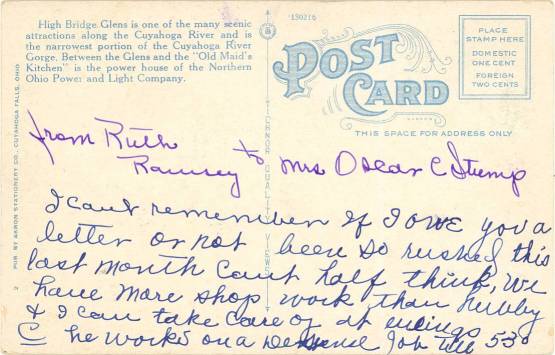 High Bridge Glens is one of the many scenic
attractions along the Cuyahoga River and is
the narrowest portion of the Cuyahoga River
Gorge. Between the Glens and the "Old Maid's
Kitchen" is the power house of the Northern
Ohio Power and Light Company.
150216
POST
CARD
PLACE
STAMP HERE
DOMESTIC
ONE CENT
FOREIGN
TWO CENTS
THIS SPACE FOR ADDRESS ONLY
PUB. BY AKRON STATIONERY CO., CUYAHOGA FALLS, OHIO
2
from Ruth
Ramsey to Mrs Oscar C Stump
I cant remember if I owe you a
letter or not been so rushed this
last month cant half think, we
have more shop work than hubby
& I can take care of at
he works on a Job till 530